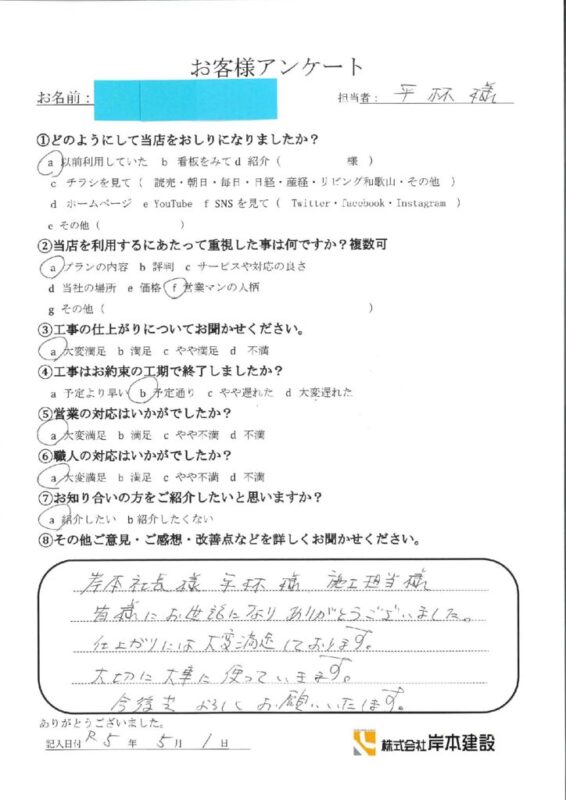 お客様アンケート
お名前： 担当者： 平林 様
①どのようにして当店をおしりになりましたか？
a 以前利用していた b 看板をみて d 紹介（ 様 ）
c チラシを見て（ 読売・朝日・毎日・日経・産経・リビング和歌山・その他 ）
d ホームページ e YouTube f SNSを見て（ Twitter・facebook・Instagram ）
e その他（ ）
②当店を利用するにあたって重視した事は何ですか？複数可
a プランの内容 b 評判 c サービスや対応の良さ
d 当社の場所 e 価格 f 営業マンの人柄
g その他（ ）
③工事の仕上がりについてお聞かせください。
a 大変満足 b 満足 c やや満足 d 不満
④工事はお約束の工期で終了しましたか？
a 予定より早い b 予定通り c やや遅れた d 大変遅れた
⑤営業の対応はいかがでしたか？
a 大変満足 b 満足 c やや不満 d 不満
⑥職人の対応はいかがでしたか？
a 大変満足 b 満足 c やや不満 d 不満
⑦お知り合いの方をご紹介したいと思いますか？
a 紹介したい b 紹介したくない
⑧その他ご意見・ご感想・改善点などを詳しくお聞かせください。
岸本社長様 平林様 施工担当様
皆様にお世話になりありがとうございました。
仕上がりには大変満足しております。
大切に大事に使っています。
今後もよろしくお願いいたします。
ありがとうございました。
記入日付 R5 年 5 月 1 日
株式会社岸本建設